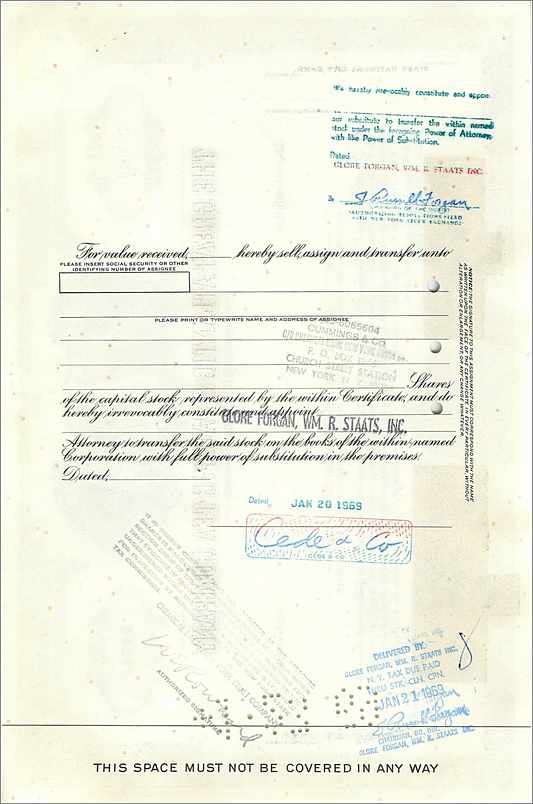 We hereby irrevocably constitute and appoint
our substitute to transfer the within named
stock under the foregoing Power of Attorney,
with like Power of Substitution.
Dated
GLORE FORGAN, WM. R. STAATS INC.
By J. Russell Forgan
For value received, hereby sell, assign and transfer unto
PLEASE INSERT SOCIAL SECURITY OR OTHER
IDENTIFYING NUMBER OF ASSIGNEE
PLEASE PRINT OR TYPEWRITE NAME AND ADDRESS OF ASSIGNEE
CUMMINGS & CO.
P. O. BOX
CHURCH STREET STATION
NEW YORK
Shares
of the capital stock represented by the within Certificate, and do
hereby irrevocably constitute and appoint
GLORE FORGAN, WM. R. STAATS, INC.
Attorney to transfer the said stock on the books of the within named
Corporation with full power of substitution in the premises.
Dated,
NOTICE: THE SIGNATURE TO THIS ASSIGNMENT MUST CORRESPOND WITH THE NAME
AS WRITTEN UPON THE FACE OF THE CERTIFICATE IN EVERY PARTICULAR, WITHOUT
ALTERATION OR ENLARGEMENT, OR ANY CHANGE WHATEVER.
Dated JAN 20 1969
Cede & Co
CEDE & CO
TAX COMMISSION.
AUTHORIZED SIGNATURE
DELIVERED BY:
GLORE FORGAN, WM. R. STAATS INC.
N. Y. TAX DUE PAID
THRU STK. CLR. CPN.
JAN 21 1969
GLORE FORGAN, WM. R. STAATS INC.
THIS SPACE MUST NOT BE COVERED IN ANY WAY